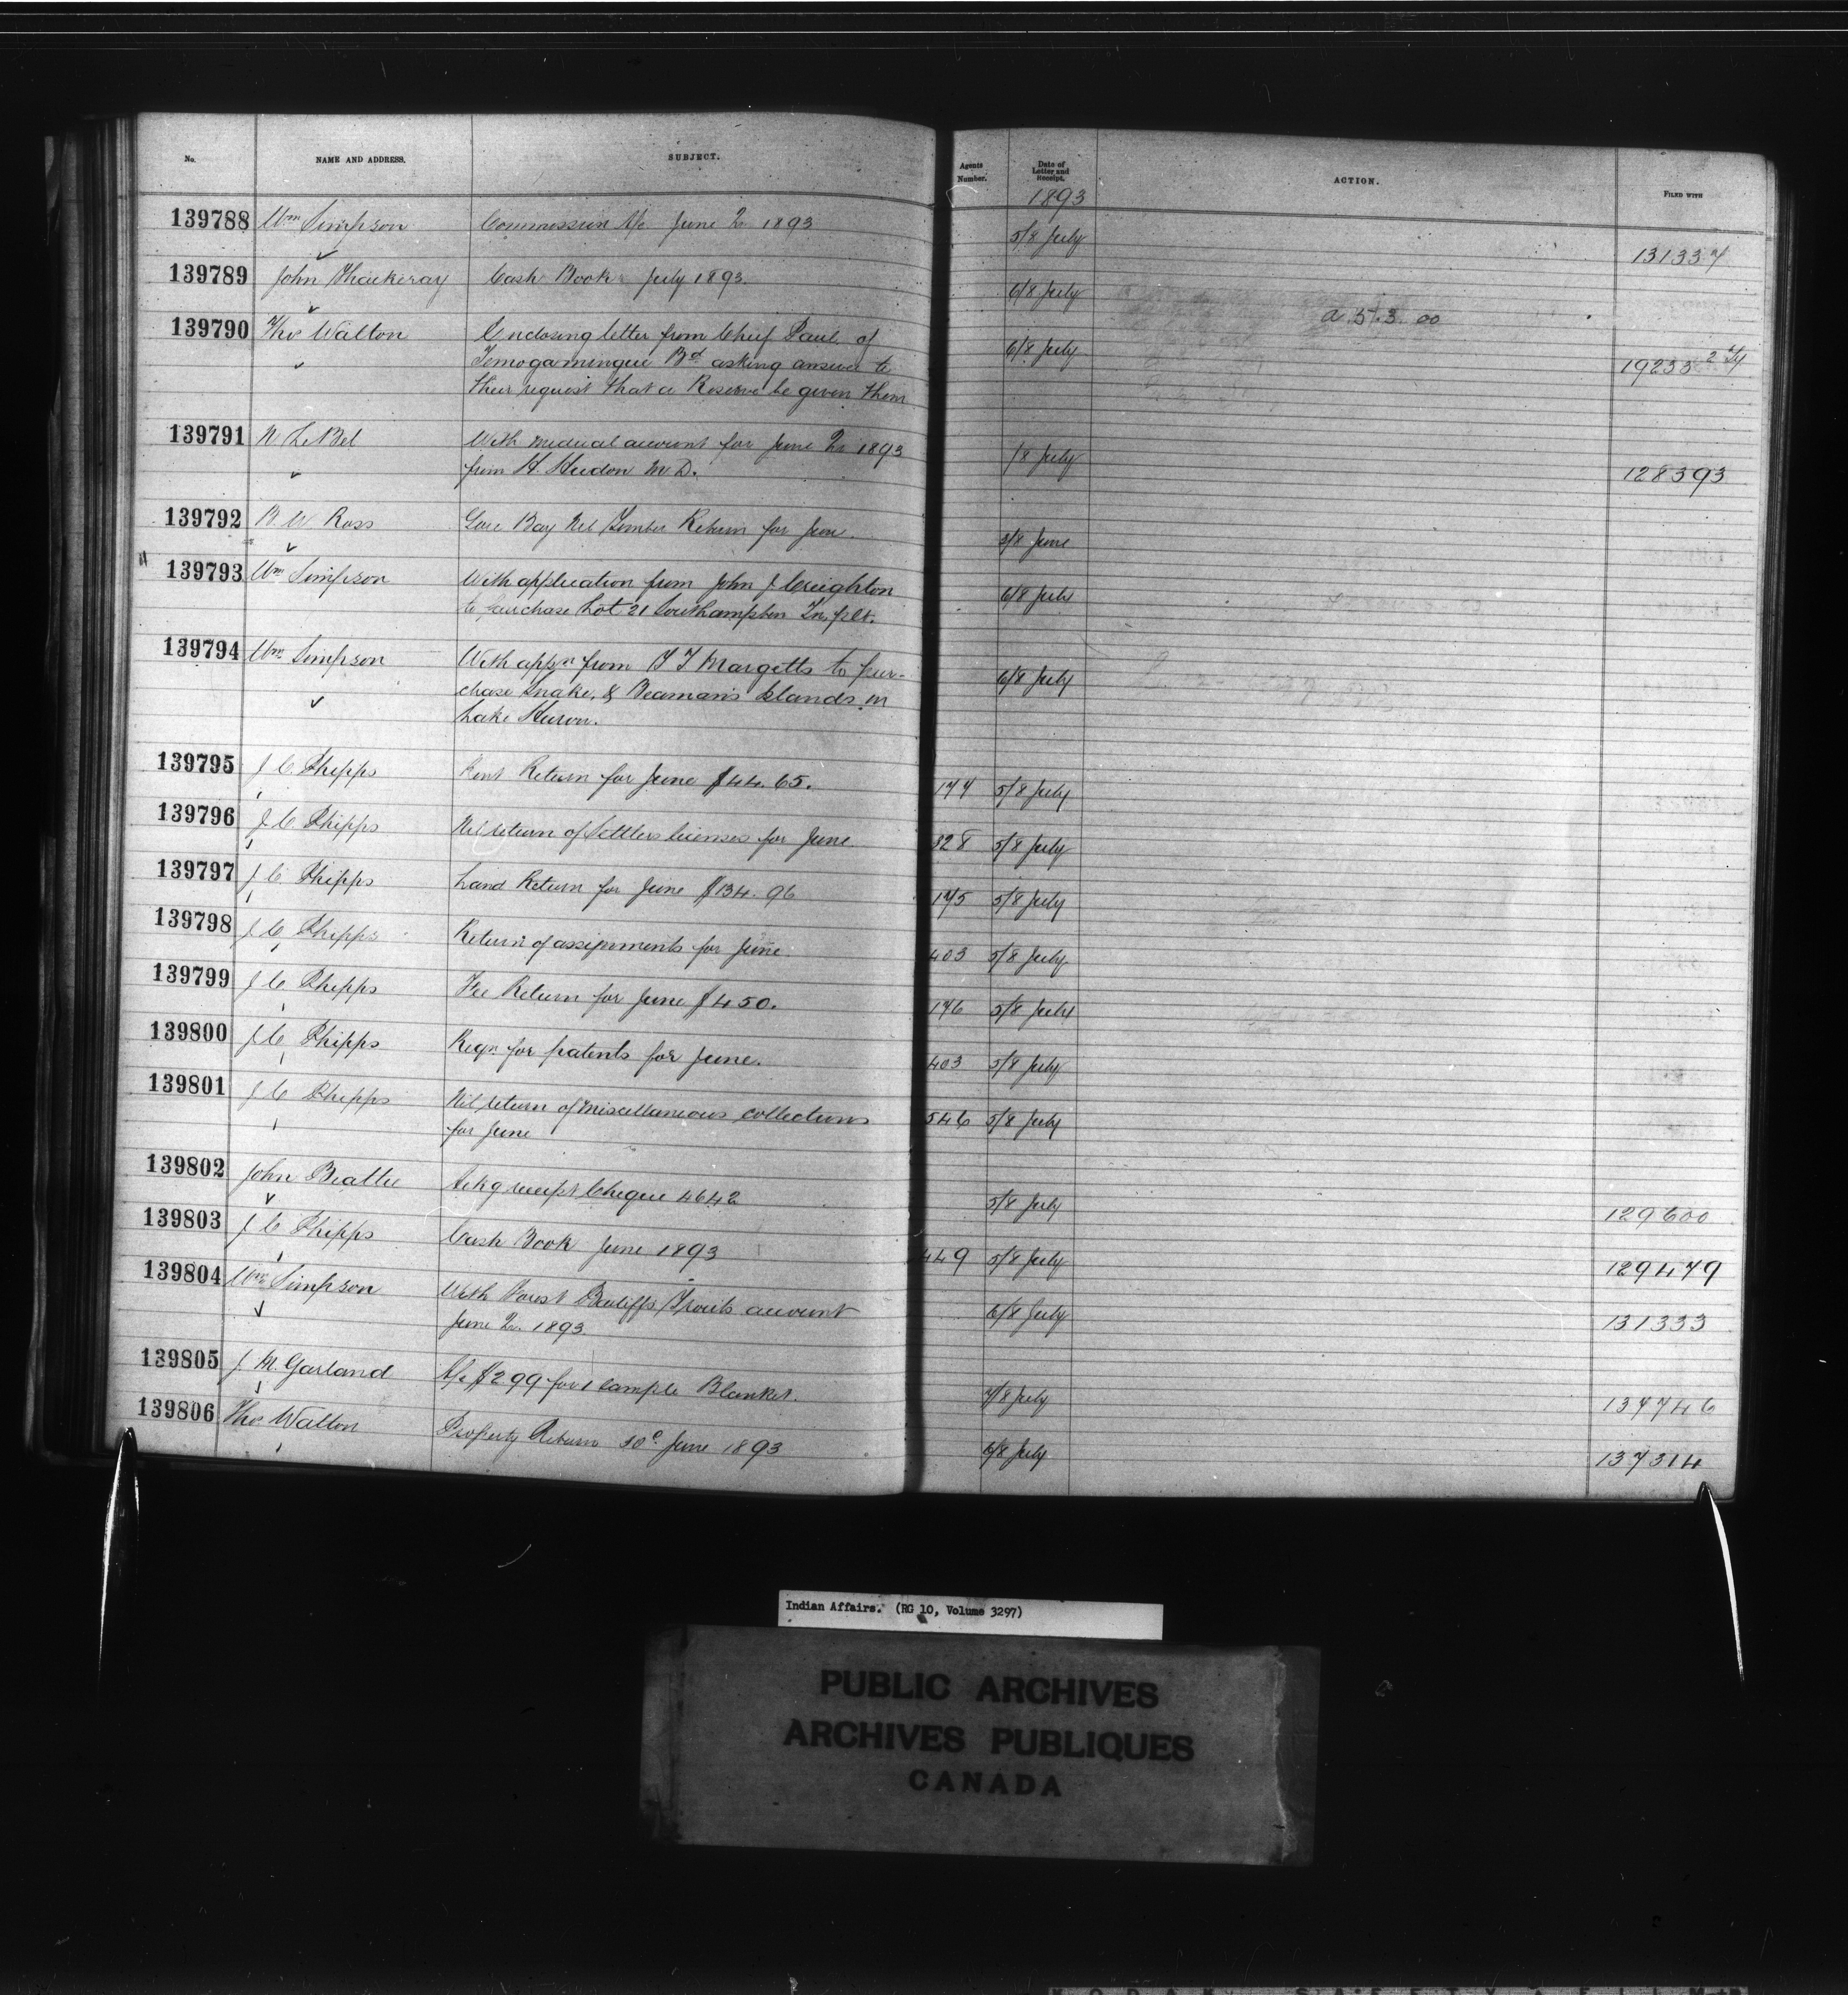 No. NAME AND ADDRESS. SUBJECT. Agents Number. Date of Letter and Receipt. ACTION. FILED WITH
1893
139788 Wm Simpson Commission a/c June Qr 1893 5/8 July 131337
139789 John Thackeray Cash Book July 1893. 6/8 July a.513.00
139790 Thos Walton Enclosing letter from Chief Paul of 6/8 July 19233
Temogamingue Bd asking answer to
their request that a Reserve be given them
139791 N LeBel With medical account for June Qr 1893 /8 July 128393
from H. Hudon M.D.
139792 B. W. Ross Gore Bay Nil Timber Return for June. 3/8 June
" 139793 Wm Simpson With application from John J Creighton 6/8 July
to purchase Lot 21 Southampton Tn. plt.
139794 Wm Simpson With appn from T J Margetts to pur- 6/8 July
chase Snake, & Beaman's Islands in
Lake Huron.
139795 J C Phipps Rent Return for June $44.65. 177 5/8 July
139796 J C Phipps Nil return of Settlers licenses for June. 328 5/8 July
139797 J C Phipps Land Return for June $134.96 175 5/8 July
139798 J C Phipps Return of assignments for June. 403 5/8 July
139799 J C Phipps Fee Return for June $4 50. 176 5/8 July
139800 J C Phipps Reqn for patents for June. 403 5/8 July
139801 J C Phipps Nil return of Miscellaneous collections 546 5/8 July
for June
139802 John Beattie Ackg receipt Cheque 4642 5/8 July 129600
139803 J C Phipps Cash Book June 1893 449 5/8 July 129479
139804 Wm Simpson With Forest Bailiff's Trouts account 6/8 July 131333
June Qr. 1893.
139805 J. M. Garland A/c $2 99 for 1 sample Blanket. 7/8 July 137746
139806 Thos Walton Property Return 30th June 1893 6/8 July 137314
Indian Affairs. (RG 10, Volume 3297)
PUBLIC ARCHIVES
ARCHIVES PUBLIQUES
CANADA